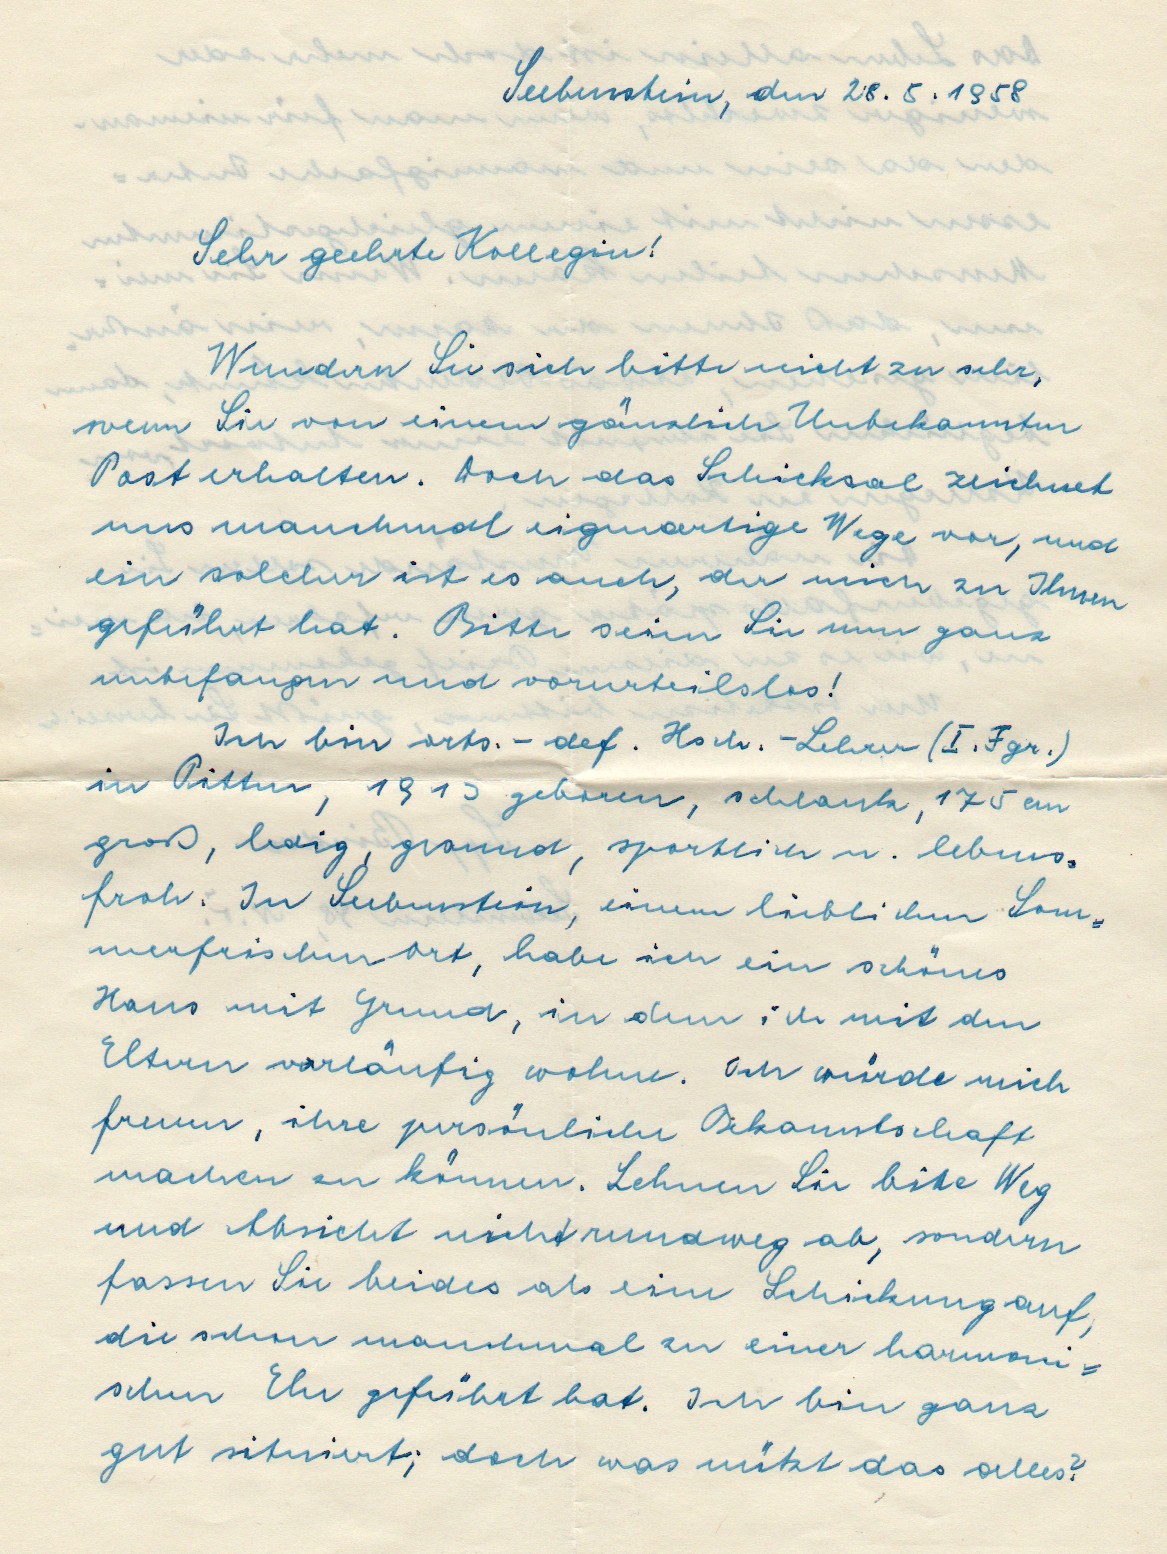 Seebenstein, den 28.5.1958
Sehr geehrte Kollegin!
Wundern Sie sich bitte nicht zu sehr,
wenn Sie von einem gänzlich Unbekannten
Post erhalten. Doch das Schicksal zeichnet
uns manchmal eigenartige Wege vor, und
ein solcher ist es auch, der mich zu Ihnen
geführt hat. Bitte seien Sie nun ganz
unbefangen und vorurteilslos!
Ich bin orts.-def. Hsch.-Lehrer (I. Fgr.)
in Pitten, 1913 geboren, schlank, 175 cm
groß, ledig, gesund, sportlich u. lebens=
froh. In Seebenstein, einem lieblichen Som=
merfrischenort, habe ich ein schönes
Haus mit Grund, in dem ich mit den
Eltern vorläufig wohne. Ich würde mich
freuen, ihre persönliche Bekanntschaft
machen zu können. Lehnen Sie bitte Weg
und Absicht nicht rundweg ab, sondern
fassen Sie beides als eine Schickung auf,
die schon manchmal zu einer harmoni=
schen Ehe geführt hat. Ich bin ganz
gut situiert; doch was nützt das alles?